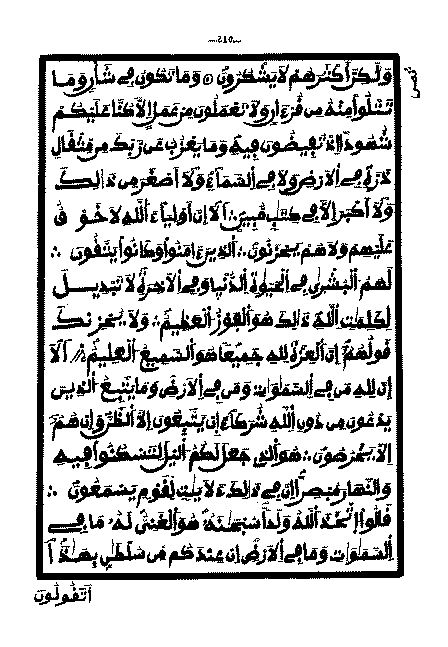 وَلَٰكِنَّ أَكْثَرَهُمْ لَا يَشْكُرُونَ ۝ وَمَا تَكُونُ فِي شَأْنٍ وَمَا
تَتْلُوا مِنْهُ مِن قُرْءَانٍ وَلَا تَعْمَلُونَ مِنْ عَمَلٍ إِلَّا كُنَّا عَلَيْكُمْ
شُهُودًا إِذْ تُفِيضُونَ فِيهِ وَمَا يَعْزُبُ عَن رَّبِّكَ مِن مِّثْقَالِ
ذَرَّةٍ فِي ٱلْأَرْضِ وَلَا فِي ٱلسَّمَاءِ وَلَا أَصْغَرَ مِن ذَٰلِكَ
وَلَا أَكْبَرَ إِلَّا فِي كِتَٰبٍ مُّبِينٍ ∴ أَلَا إِنَّ أَوْلِيَاءَ ٱللَّهِ لَا خَوْفٌ
عَلَيْهِمْ وَلَا هُمْ يَحْزَنُونَ ∴ ٱلَّذِينَ ءَامَنُوا وَكَانُوا يَتَّقُونَ ∴
لَهُمُ ٱلْبُشْرَىٰ فِي ٱلْحَيَوٰةِ ٱلدُّنْيَا وَفِي ٱلْأَخِرَةِ لَا تَبْدِيلَ
لِكَلِمَٰتِ ٱللَّهِ ذَٰلِكَ هُوَ ٱلْفَوْزُ ٱلْعَظِيمُ ∴ وَلَا يُحْزِنكَ
قَوْلُهُمْ إِنَّ ٱلْعِزَّةَ لِلَّهِ جَمِيعًا هُوَ ٱلسَّمِيعُ ٱلْعَلِيمُ ∴ أَلَا
إِنَّ لِلَّهِ مَن فِي ٱلسَّمَٰوَٰتِ وَمَن فِي ٱلْأَرْضِ وَمَا يَتَّبِعُ ٱلَّذِينَ
يَدْعُونَ مِن دُونِ ٱللَّهِ شُرَكَاءَ إِن يَتَّبِعُونَ إِلَّا ٱلظَّنَّ وَإِنْ هُمْ
إِلَّا يَخْرُصُونَ ∴ هُوَ ٱلَّذِي جَعَلَ لَكُمُ ٱلَّيْلَ لِتَسْكُنُوا فِيهِ
وَٱلنَّهَارَ مُبْصِرًا إِنَّ فِي ذَٰلِكَ لَأَيَٰتٍ لِّقَوْمٍ يَسْمَعُونَ ∴
قَالُوا ٱتَّخَذَ ٱللَّهُ وَلَدًا سُبْحَٰنَهُ هُوَ ٱلْغَنِيُّ لَهُ مَا فِي
ٱلسَّمَٰوَٰتِ وَمَا فِي ٱلْأَرْضِ إِنْ عِندَكُم مِّن سُلْطَٰنٍ بِهَٰذَا أَ
أَتَقُولُونَ